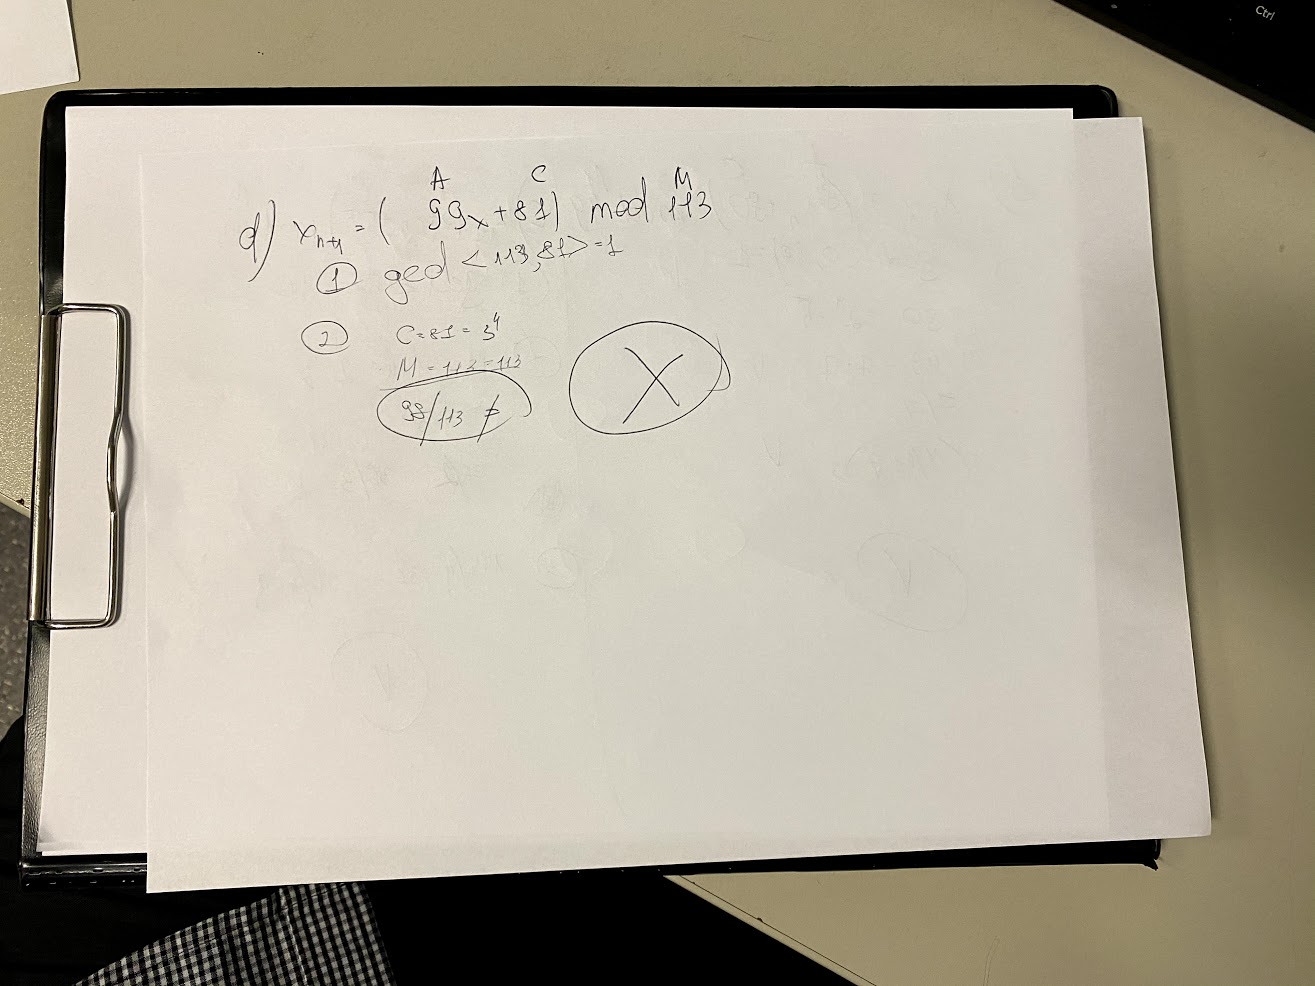 Ctrl
A C M
d) x_{n+1} = ( 99x + 81) mod 113
① gcd <113, 81> = 1
② C = 81 = 3^4
M = 113 = 113
98/113 ≠
X